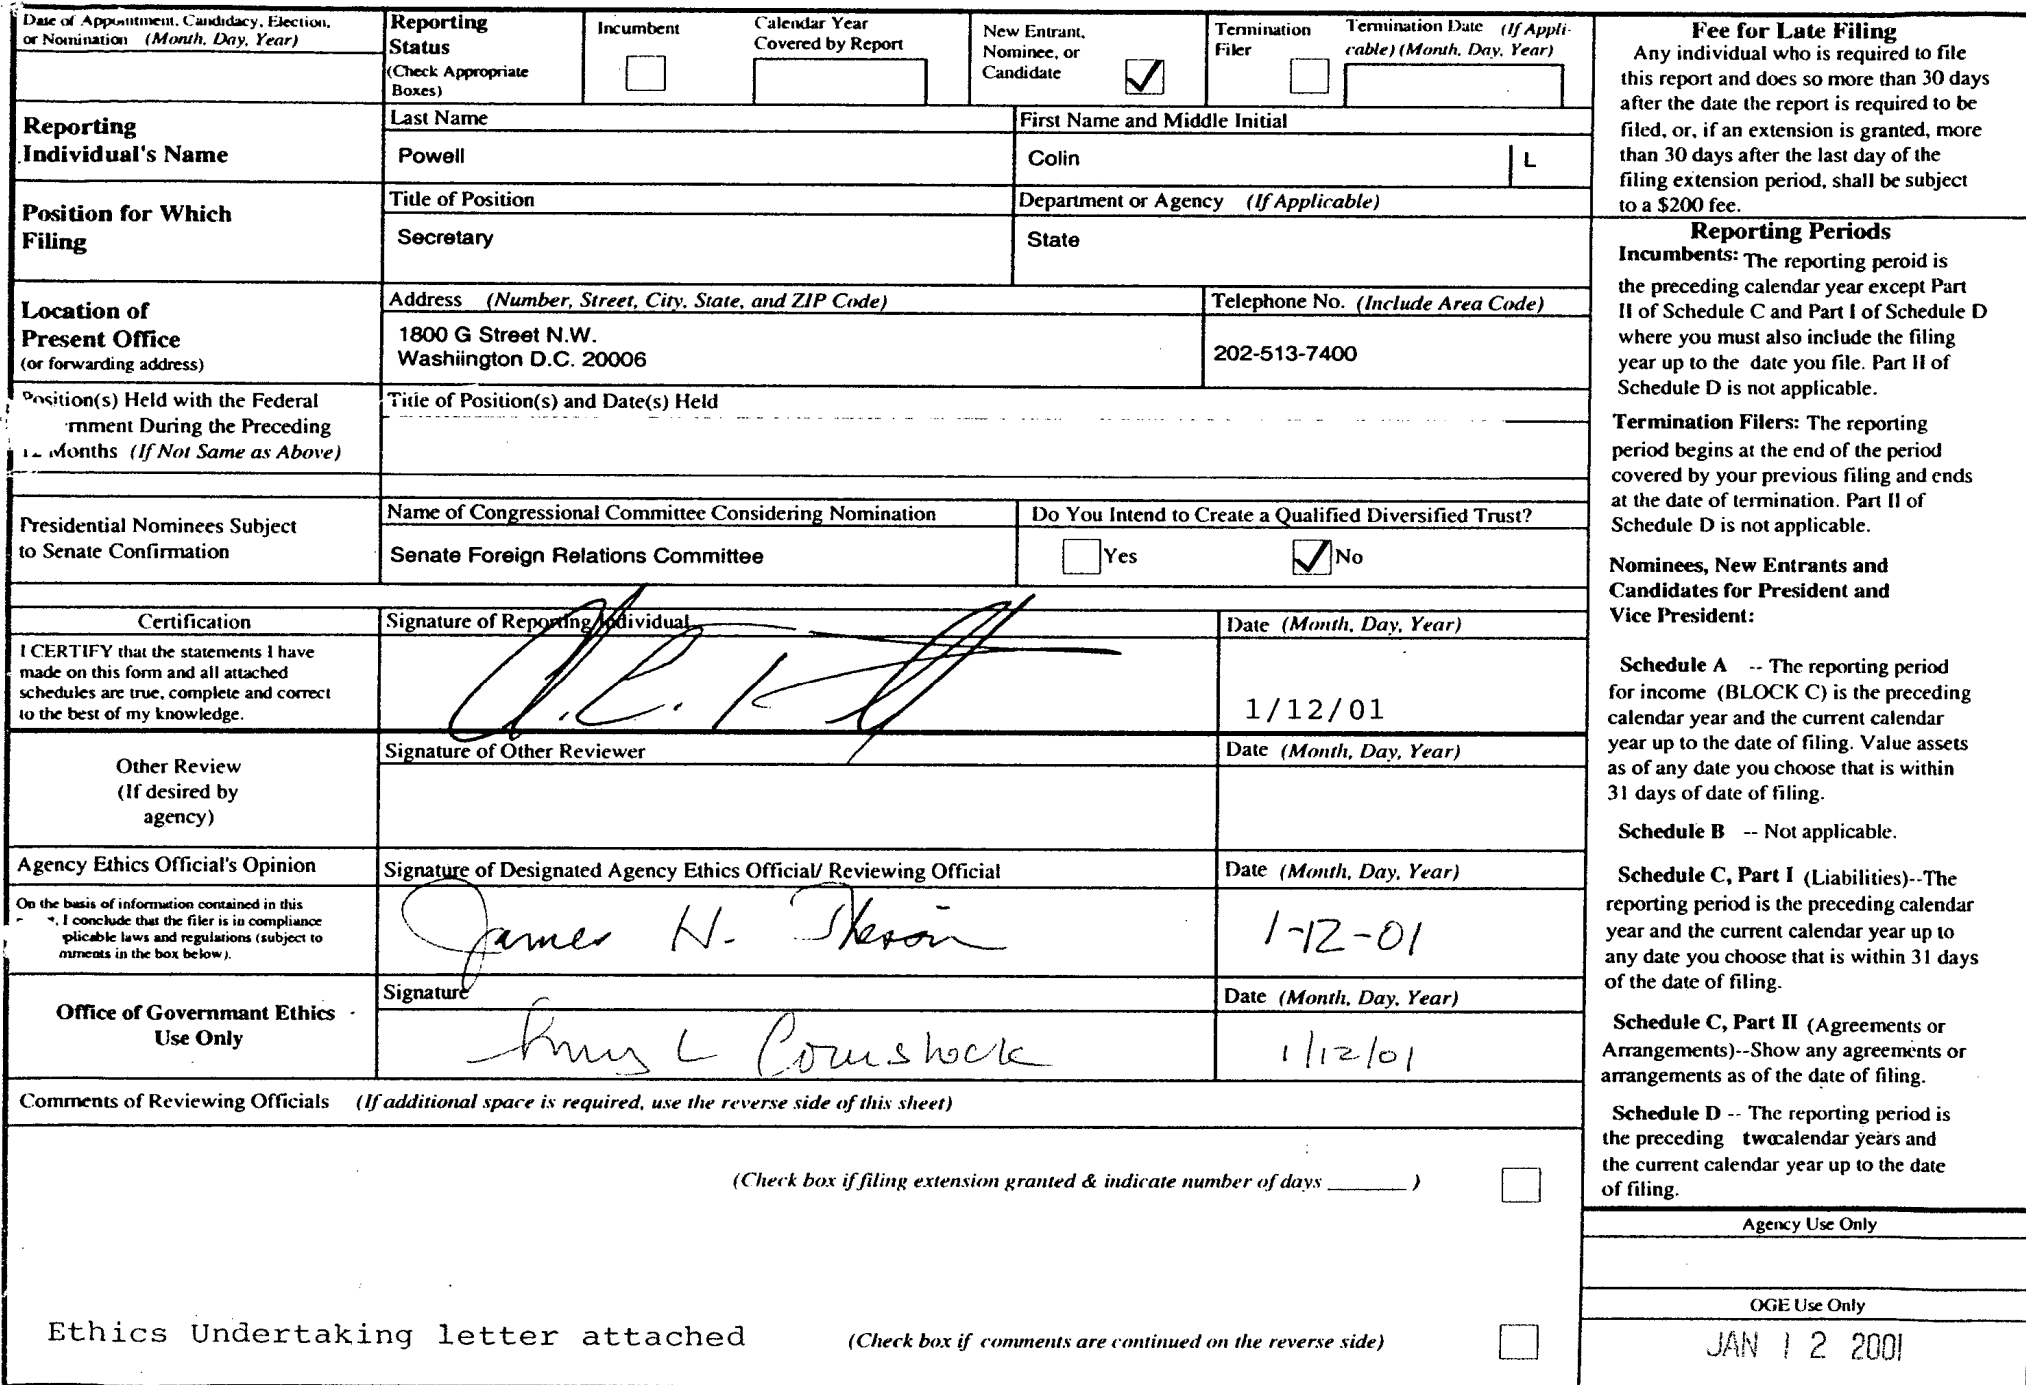 Date of Appointment, Candidacy, Election,
or Nomination (Month, Day, Year)
Reporting
Status
(Check Appropriate
Boxes)
Incumbent
Calendar Year
Covered by Report
New Entrant,
Nominee, or
Candidate
Termination
Filer
Termination Date (If Appli-
cable) (Month, Day, Year)
Reporting
Individual's Name
Last Name
Powell
First Name and Middle Initial
Colin L
Position for Which
Filing
Title of Position
Secretary
Department or Agency (If Applicable)
State
Location of
Present Office
(or forwarding address)
Address (Number, Street, City, State, and ZIP Code)
1800 G Street N.W.
Washiington D.C. 20006
Telephone No. (Include Area Code)
202-513-7400
Position(s) Held with the Federal
rnment During the Preceding
12 Months (If Not Same as Above)
Title of Position(s) and Date(s) Held
Presidential Nominees Subject
to Senate Confirmation
Name of Congressional Committee Considering Nomination
Senate Foreign Relations Committee
Do You Intend to Create a Qualified Diversified Trust?
Yes No
Certification
I CERTIFY that the statements I have
made on this form and all attached
schedules are true, complete and correct
to the best of my knowledge.
Signature of Reporting Individual
Date (Month, Day, Year)
1/12/01
Other Review
(If desired by
agency)
Signature of Other Reviewer
Date (Month, Day, Year)
Agency Ethics Official's Opinion
On the basis of information contained in this
I conclude that the filer is in compliance
plicable laws and regulations (subject to
mments in the box below).
Signature of Designated Agency Ethics Official/ Reviewing Official
James H.
Date (Month, Day, Year)
1-12-01
Office of Governmant Ethics
Use Only
Signature
L Comstock
Date (Month, Day, Year)
1/12/01
Comments of Reviewing Officials (If additional space is required, use the reverse side of this sheet)
(Check box if filing extension granted & indicate number of days ______ )
Ethics Undertaking letter attached
(Check box if comments are continued on the reverse side)
Fee for Late Filing
Any individual who is required to file
this report and does so more than 30 days
after the date the report is required to be
filed, or, if an extension is granted, more
than 30 days after the last day of the
filing extension period, shall be subject
to a $200 fee.
Reporting Periods
Incumbents: The reporting peroid is
the preceding calendar year except Part
II of Schedule C and Part I of Schedule D
where you must also include the filing
year up to the date you file. Part II of
Schedule D is not applicable.
Termination Filers: The reporting
period begins at the end of the period
covered by your previous filing and ends
at the date of termination. Part II of
Schedule D is not applicable.
Nominees, New Entrants and
Candidates for President and
Vice President:
Schedule A -- The reporting period
for income (BLOCK C) is the preceding
calendar year and the current calendar
year up to the date of filing. Value assets
as of any date you choose that is within
31 days of date of filing.
Schedule B -- Not applicable.
Schedule C, Part I (Liabilities)--The
reporting period is the preceding calendar
year and the current calendar year up to
any date you choose that is within 31 days
of the date of filing.
Schedule C, Part II (Agreements or
Arrangements)--Show any agreements or
arrangements as of the date of filing.
Schedule D -- The reporting period is
the preceding two calendar years and
the current calendar year up to the date
of filing.
Agency Use Only
OGE Use Only
JAN 12 2001